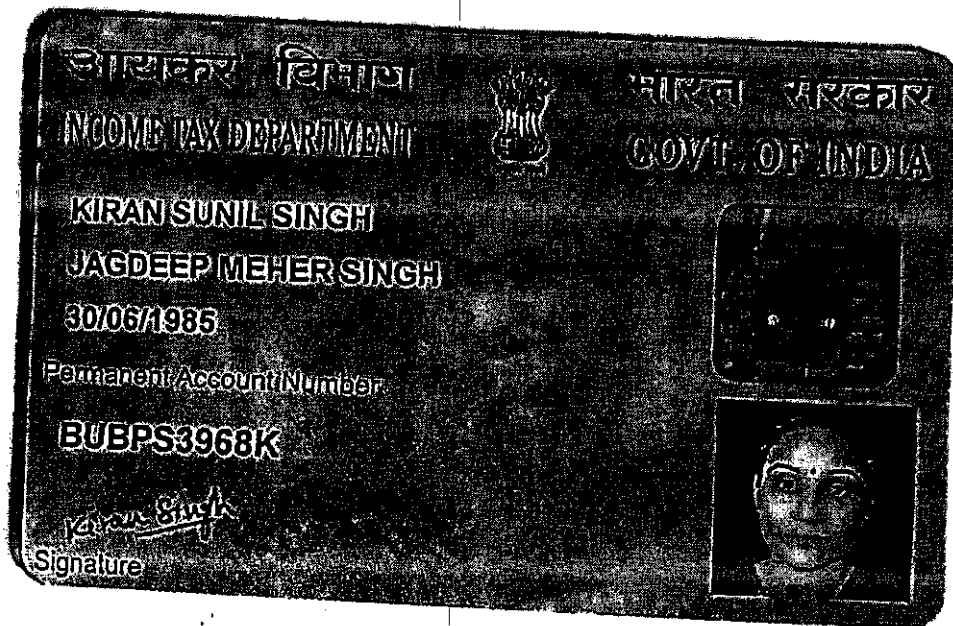 आयकर विभाग
भारत सरकार
INCOME TAX DEPARTMENT
GOVT. OF INDIA
KIRAN SUNIL SINGH
JAGDEEP MEHER SINGH
30/06/1985
Permanent Account Number
BUBPS3968K
Kiran Singh
Signature